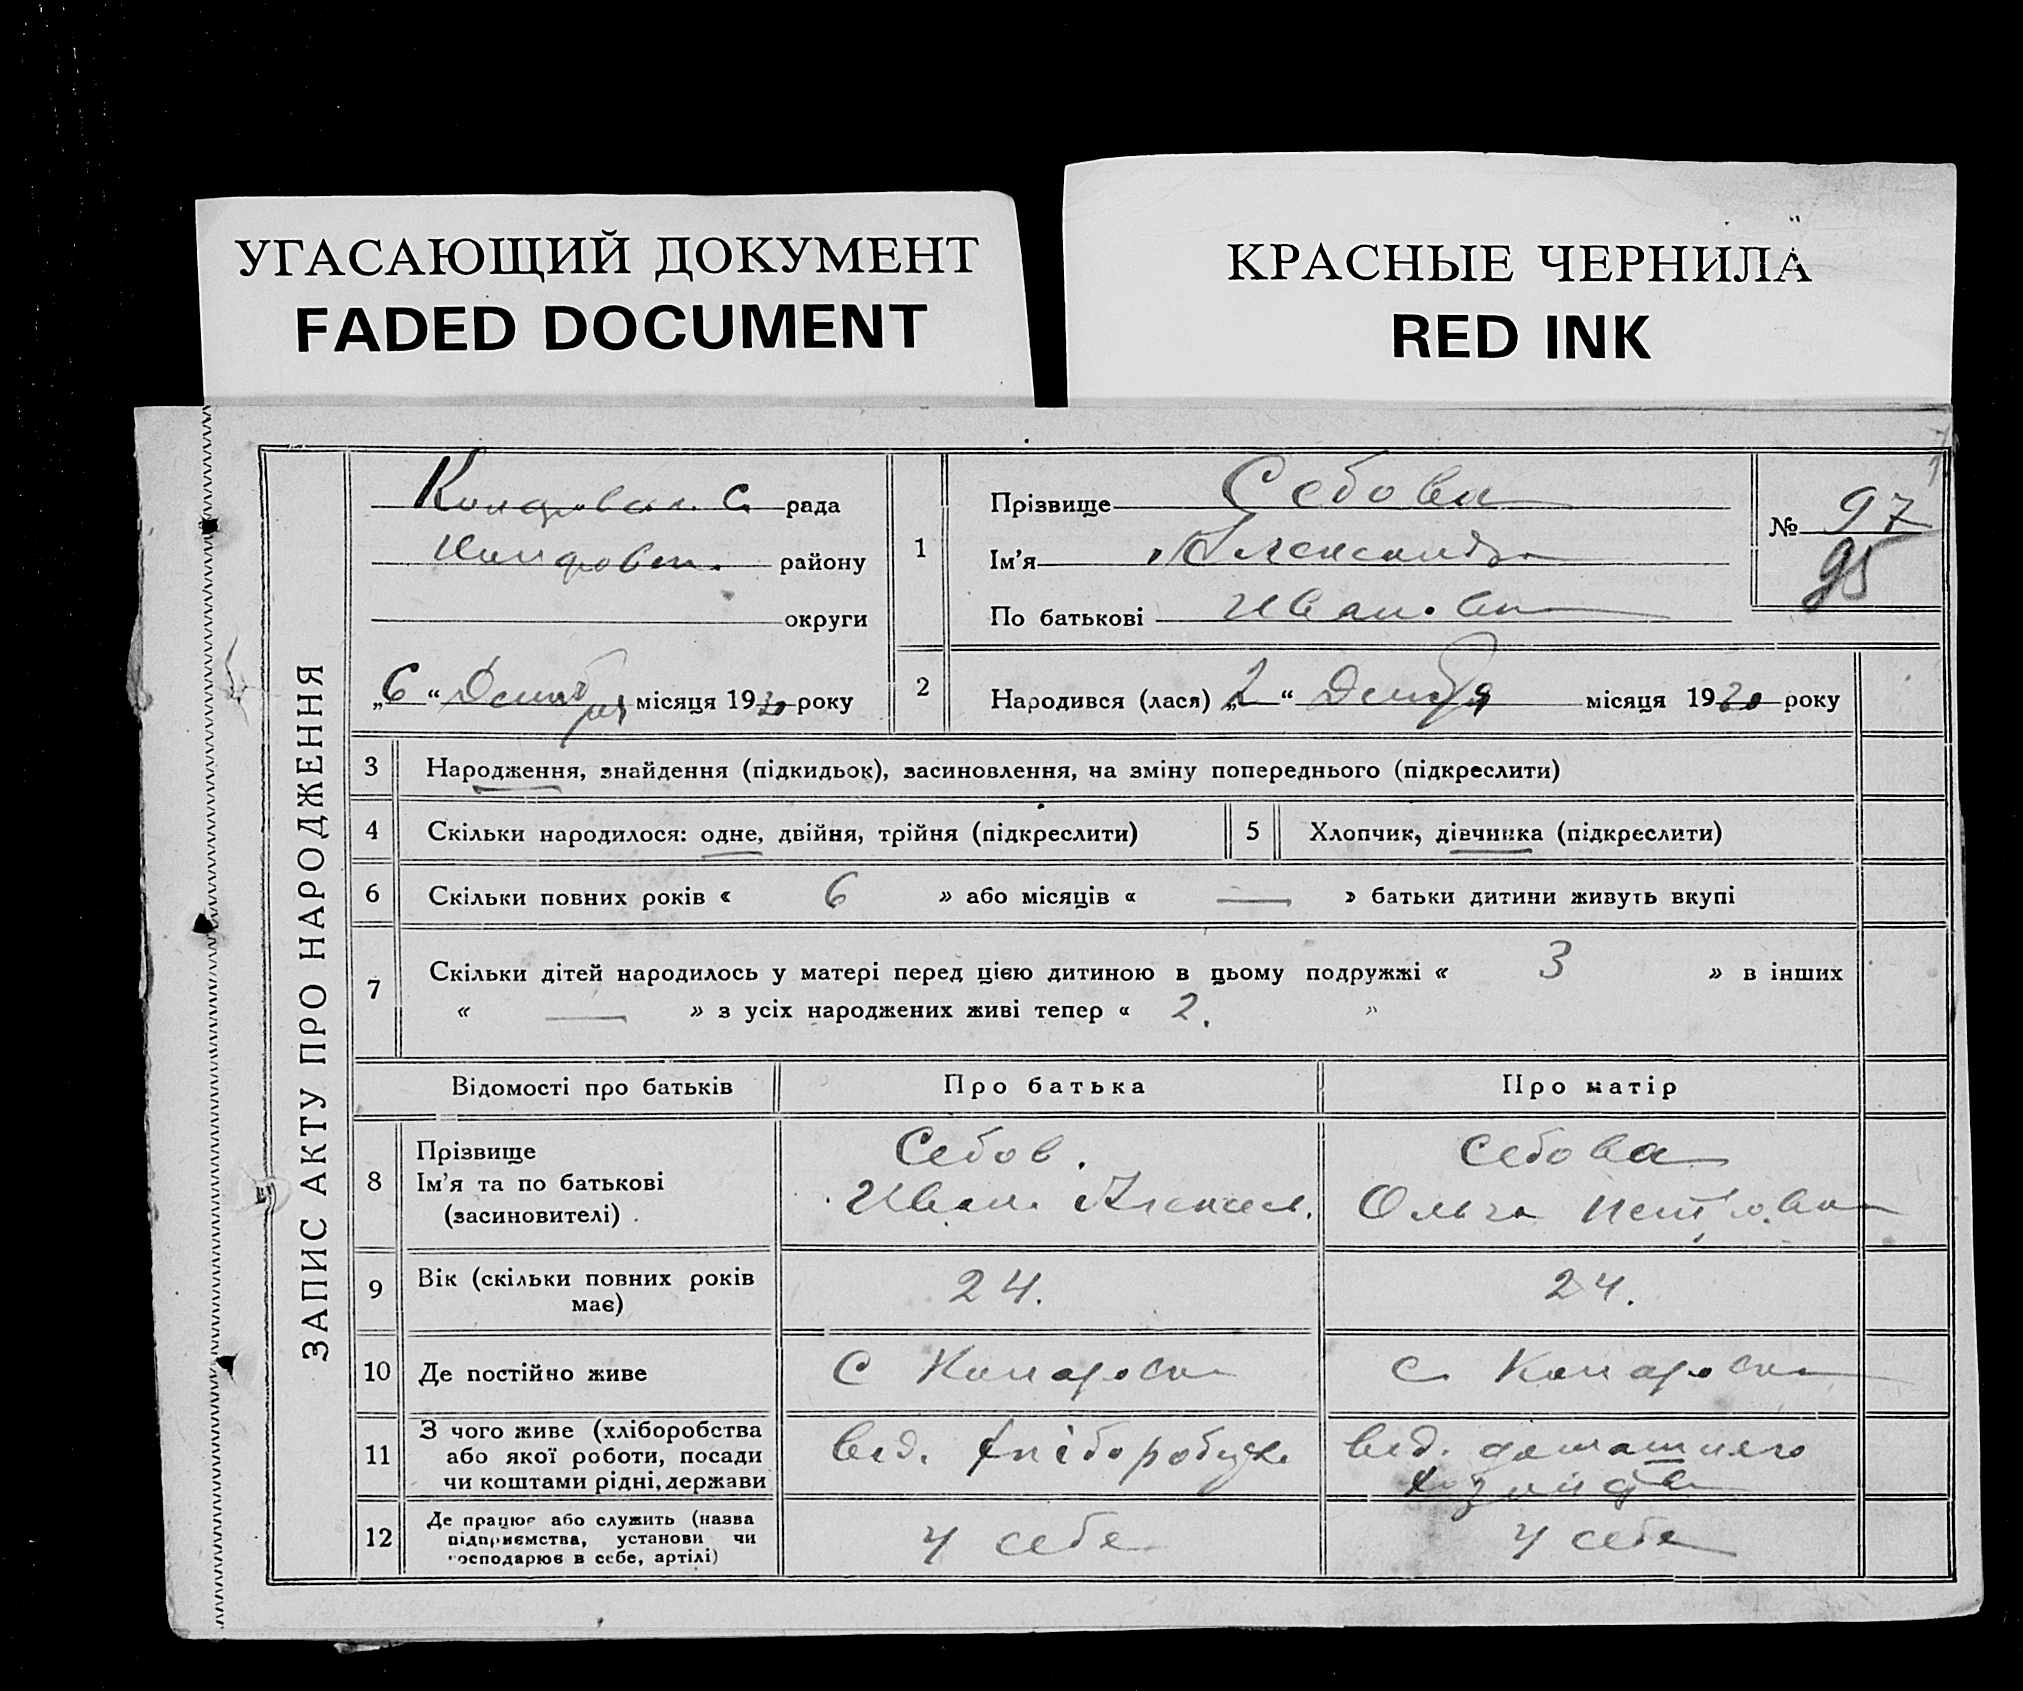 УГАСАЮЩИЙ ДОКУМЕНТ
FADED DOCUMENT
КРАСНЫЕ ЧЕРНИЛА
RED INK
ЗАПИС АКТУ ПРО НАРОДЖЕННЯ
С. рада
району
округи
„6“ місяця 1930 року
1
Прізвище Себова
Ім'я Александра
По батькові Ивановна
№ 97
95
2
Народився (лася) „2“ місяця 1930 року
3 Народження, знайдення (підкидьок), засиновлення, на зміну попереднього (підкреслити)
4 Скільки народилося: одне, двійня, трійня (підкреслити)
5 Хлопчик, дівчинка (підкреслити)
6 Скільки повних років « 6 » або місяців « — » батьки дитини живуть вкупі
7 Скільки дітей народилось у матері перед цією дитиною в цьому подружжі « 3 » в інших
« — » з усіх народжених живі тепер « 2. »
Відомості про батьків Про батька Про матір
8 Прізвище Себов. Себова
Ім'я та по батькові Иван Алексеев. Ольга Петровна
(засиновителі)
9 Вік (скільки повних років має) 24. 24.
10 Де постійно живе С С
11 З чого живе (хліборобства
або якої роботи, посади
чи коштами рідні, держави
від. від. домашнего
12 Де працює або служить (назва
підприємства, установи чи
господарює в себе, артілі)
У себе У себе